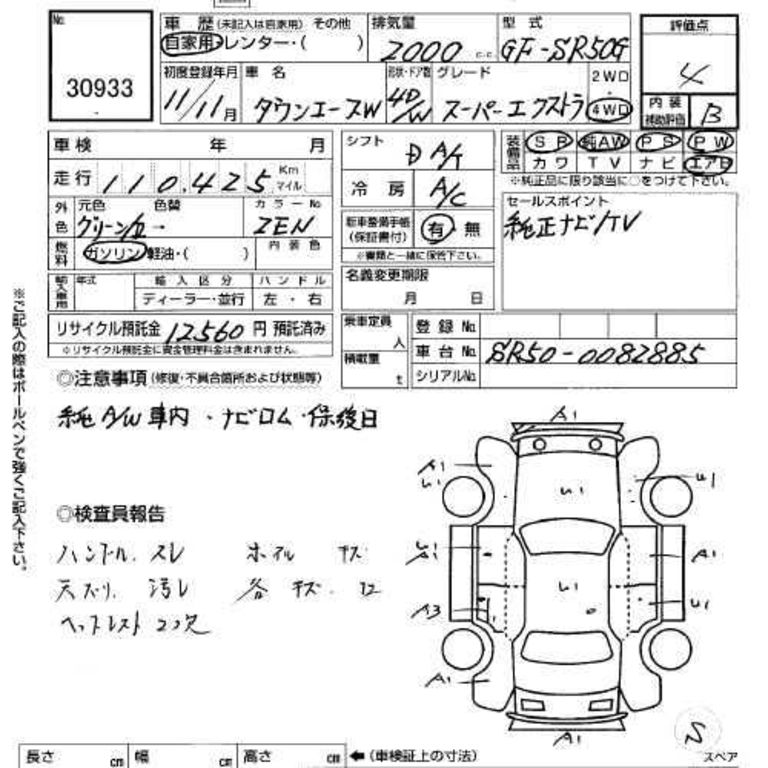 No.
30933
車歴 (未記入は自家用) その他
自家用・レンター・( )
排気量
2000 c.c.
型式
GF-SR50G
評価点
4
内装
補助評価
B
初度登録年月
11/11月
車名
タウンエースW
形状・ドア数
4D/W
グレード
スーパーエクストラ
2WD
・
4WD
車検 年 月
走行 110,425 Km
マイル
シフト
D A/T
冷房 A/C
装備品
SR 純AW PS PW
カワ TV ナビ エアB
※純正品に限り該当に○をつけて下さい。
外色
元色 色替 カラーNo.
グリーン/
ZEN
燃料
ガソリン・軽油・( )
内装色
新車整備手帳
(保証書付)
有・無
※書類と一緒に保管下さい。
セールスポイント
純正ナビ/TV
輸入車用
年式
輸入区分
ディーラー・並行
ハンドル
左・右
名義変更期限
月 日
リサイクル預託金 12,560 円 預託済み
※リサイクル預託金に資金管理料金は含まれません。
乗車定員
人
積載量
t
登録No.
車台No. SR50-0082885
シリアルNo.
◎注意事項 (修復・不具合箇所および状態等)
純A/W車内・ナビロム・保後日
◎検査員報告
ハンドル スレ ホイル キズ
天ズリ、汚レ 各 キズ・凹
ヘッドレスト2コ欠
A1
A1
U1
U1
U1
U1
A1
A1
U1
A3
U1
A1
A1
S
スペア
長さ cm 幅 cm 高さ cm ←(車検証上の寸法)
※ご記入の際はボールペンで強くご記入下さい。